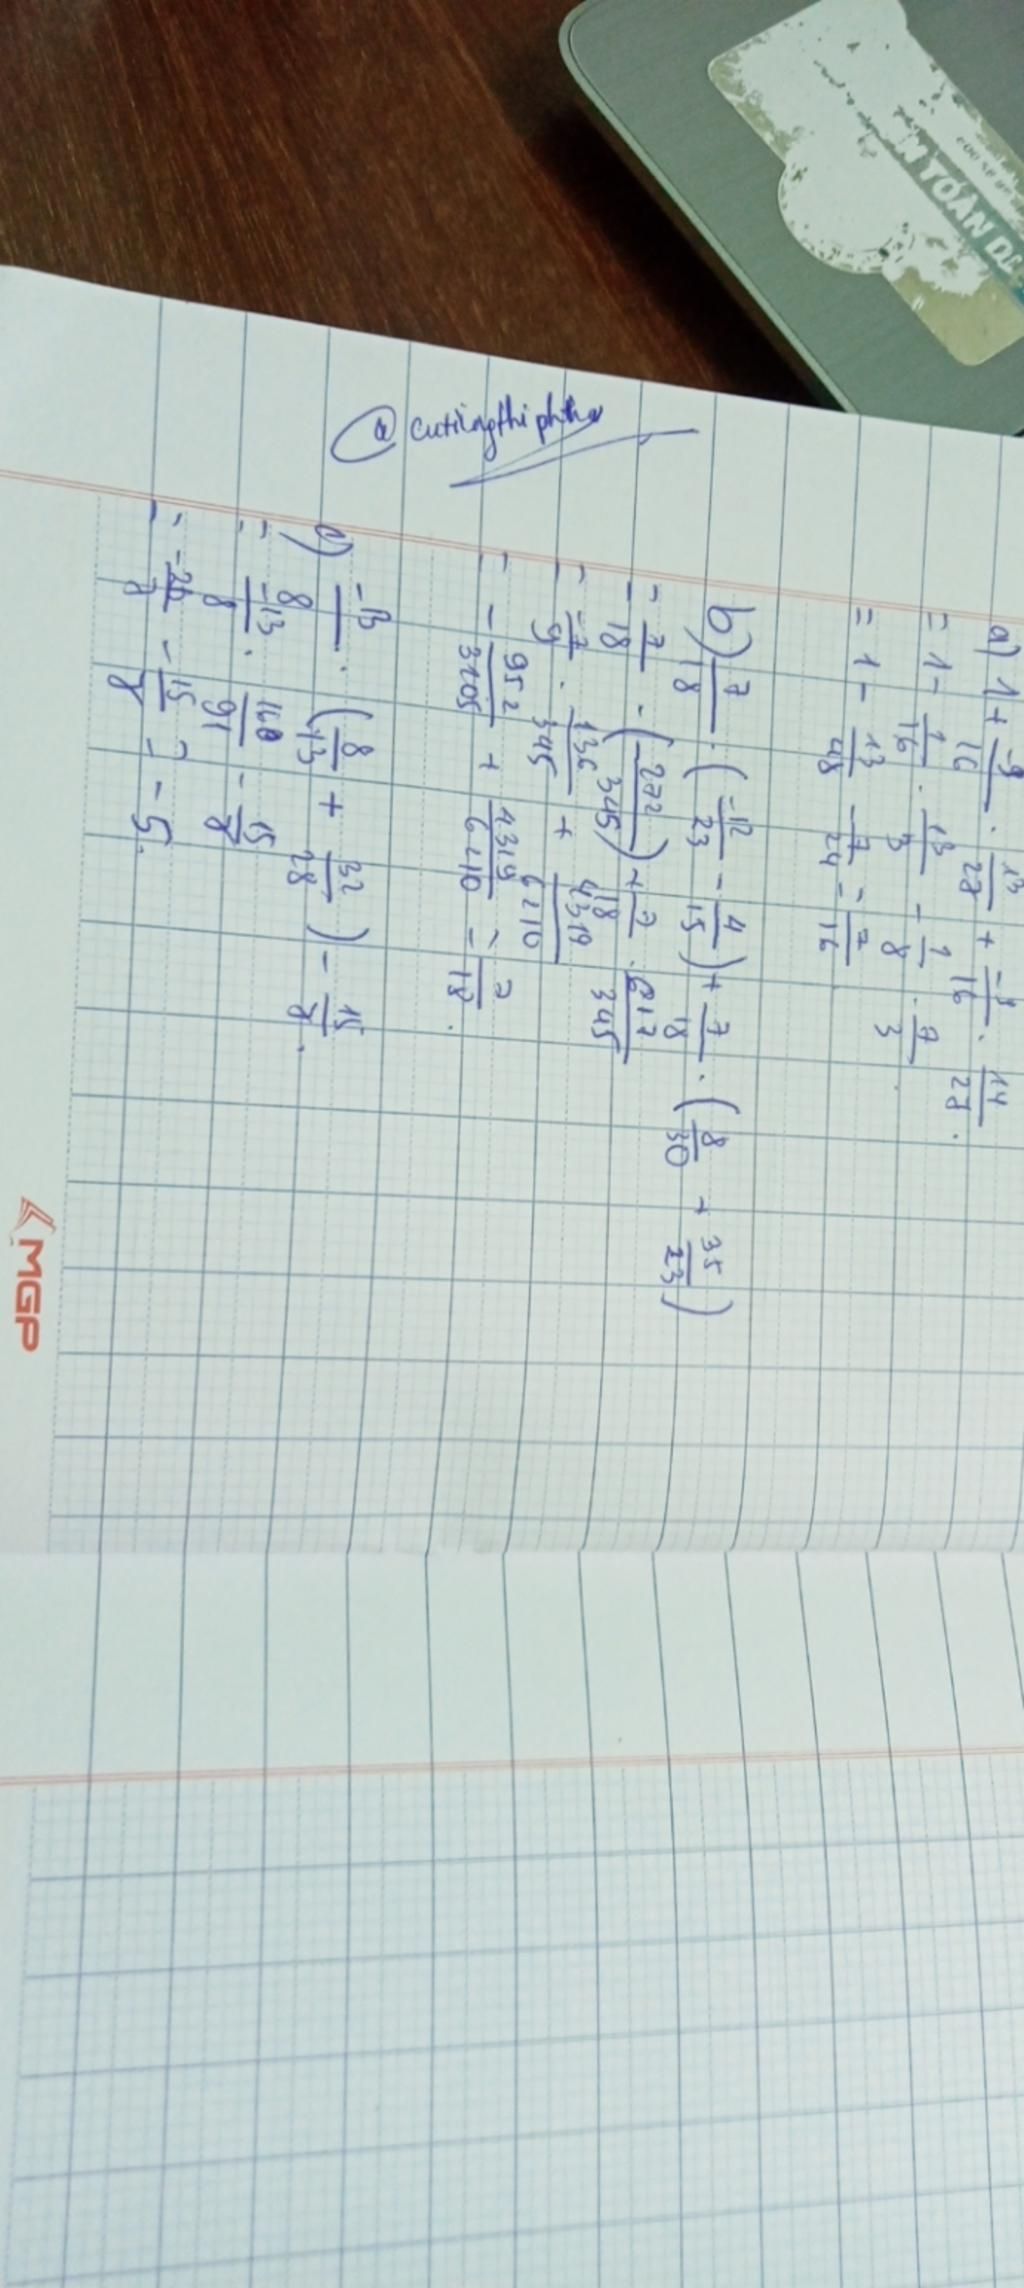 ỀN TOÁN D
a) 1 + \frac{-9}{16} . \frac{13}{27} + \frac{-9}{16} . \frac{14}{27} .
= 1 - \frac{1}{16} . \frac{13}{3} - \frac{1}{8} . \frac{7}{3}
= 1 - \frac{13}{48} - \frac{7}{24} = \frac{7}{16}
b) \frac{7}{18} . ( \frac{-12}{23} - \frac{4}{15} ) + \frac{7}{18} . ( \frac{8}{30} + \frac{35}{23} )
= \frac{7}{18} . ( \frac{272}{345} ) + \frac{7}{18} . \frac{617}{345}
= \frac{-7}{9} . \frac{136}{345} + \frac{4319}{6210}
= - \frac{952}{3105} + \frac{4319}{6210} = \frac{7}{18} .
c) \frac{-13}{8} . ( \frac{8}{13} + \frac{32}{28} ) - \frac{15}{8} .
= \frac{-13}{8} . \frac{160}{91} - \frac{15}{8}
= \frac{-20}{7} - \frac{15}{8} = - 5.
MGP